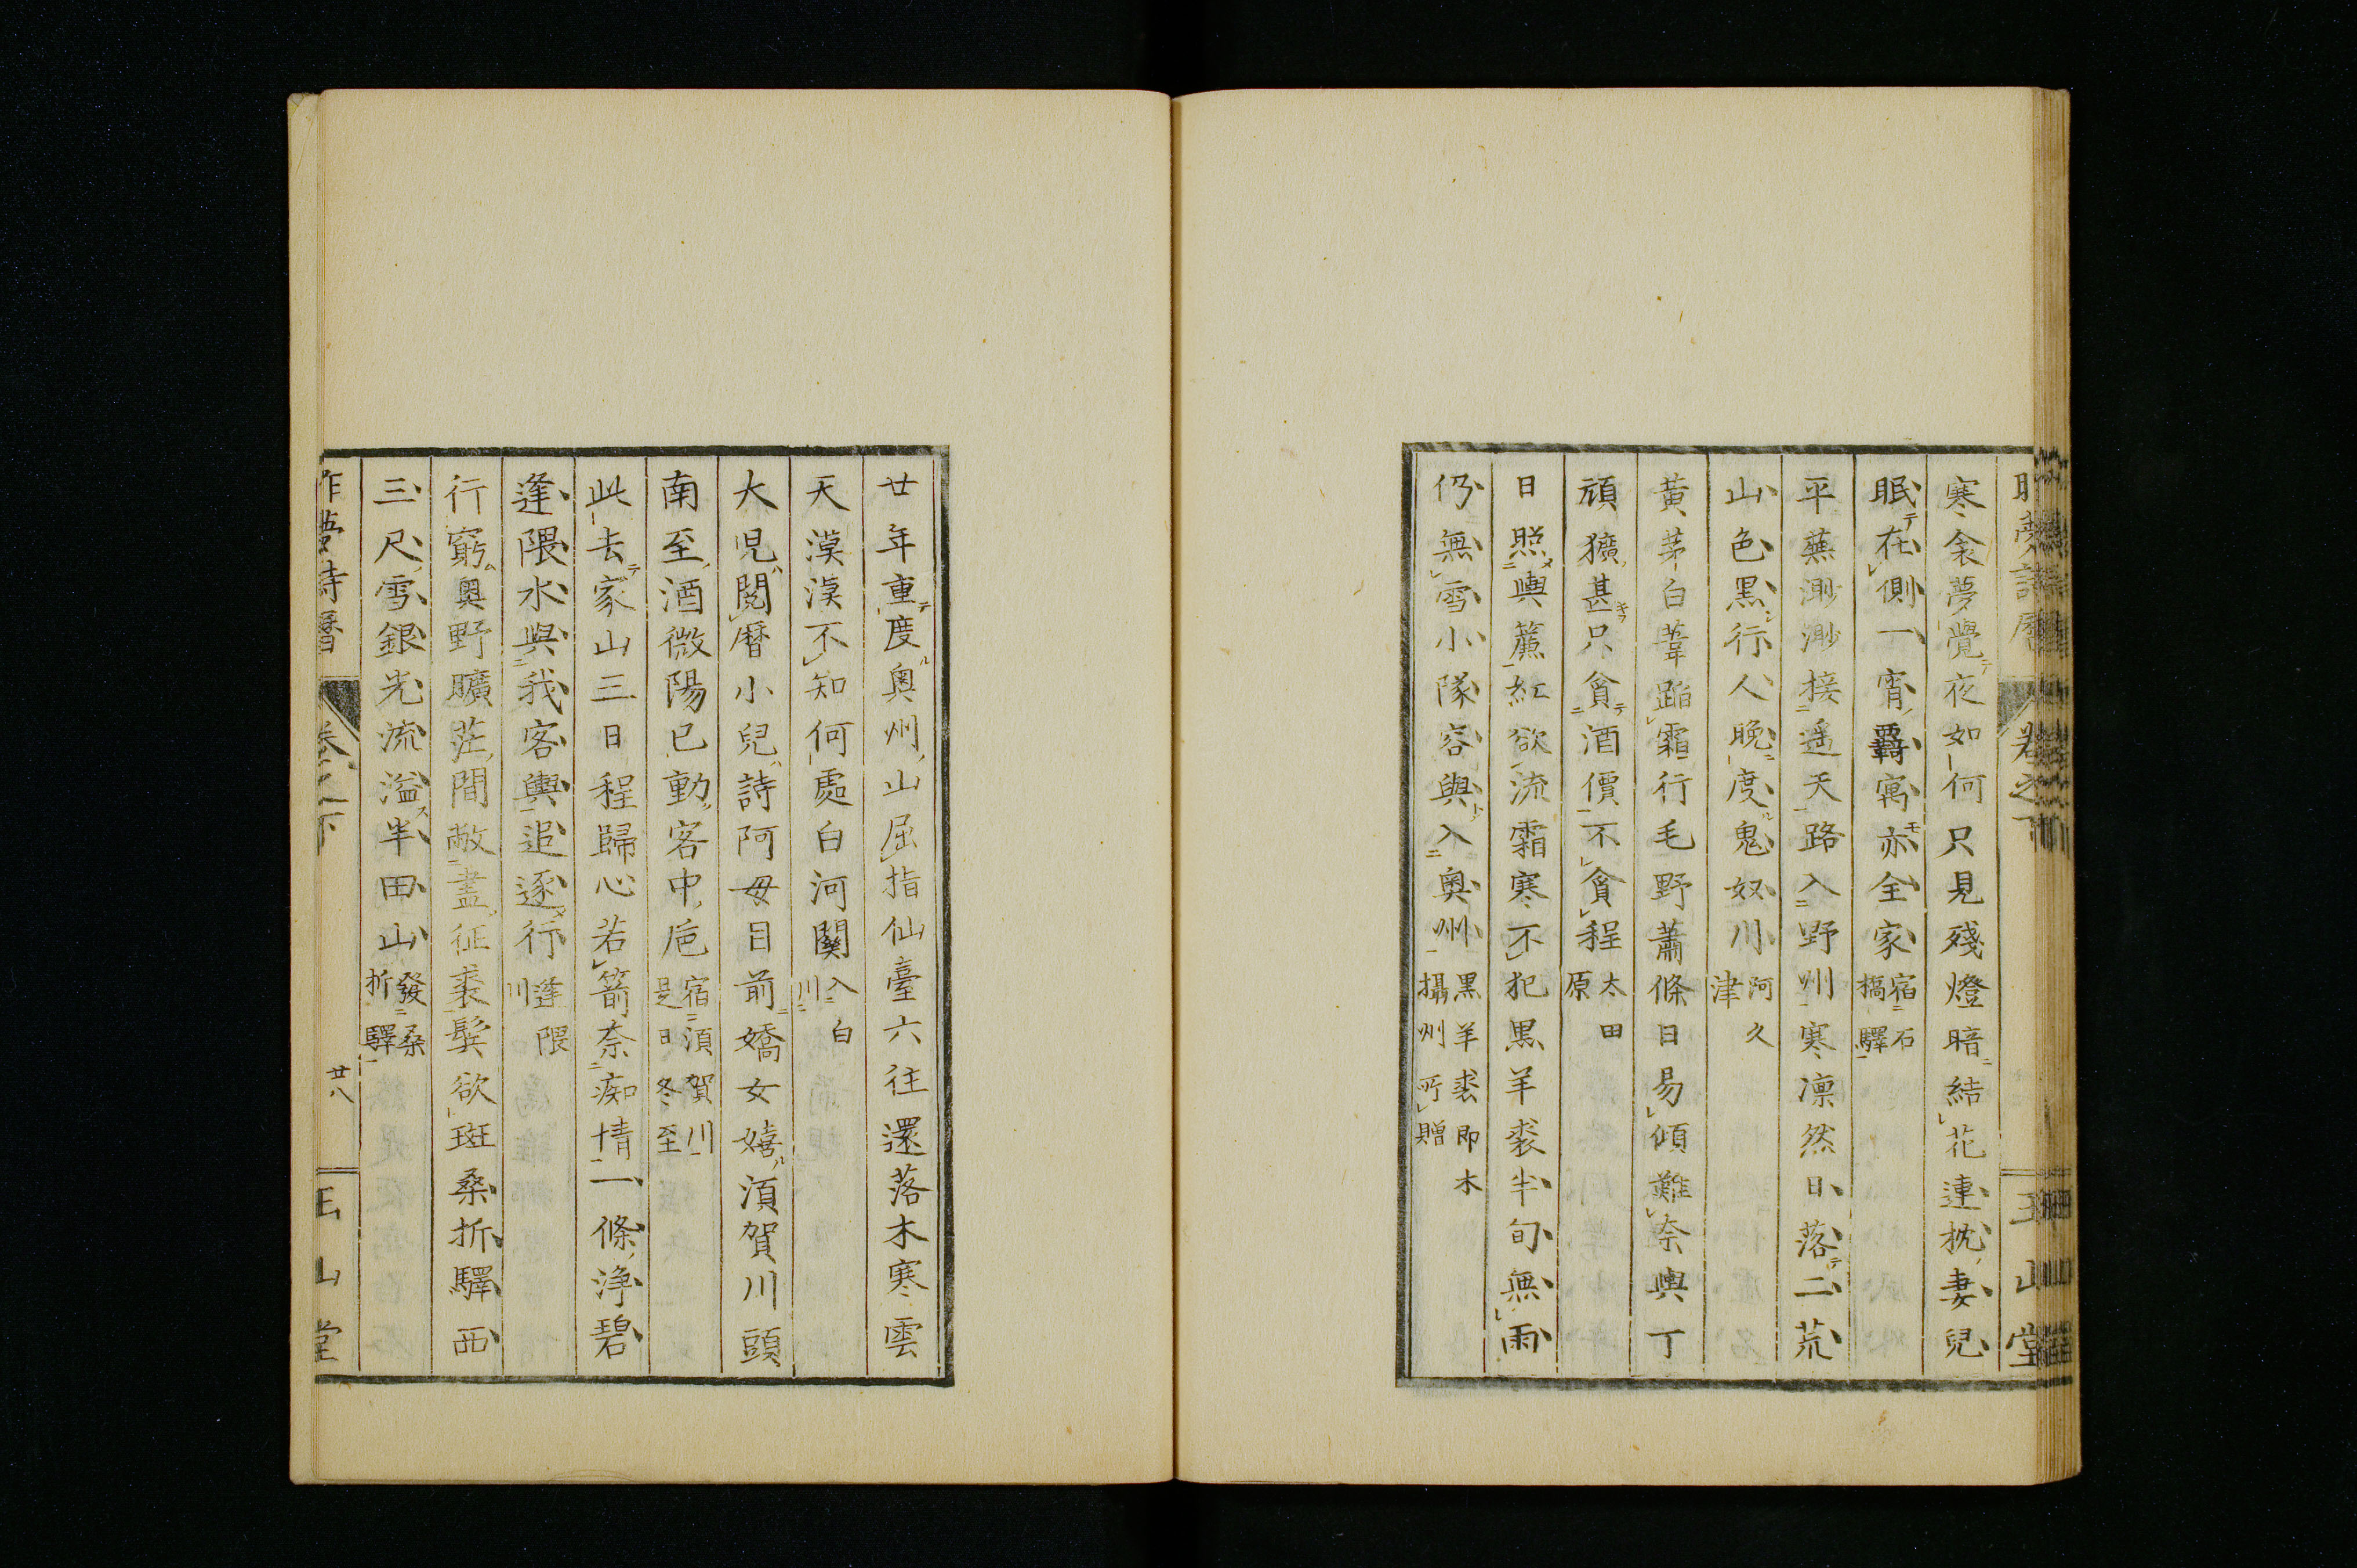 寒衾夢覺夜如何只見殘燈暗結花連枕妻兒
眠在側一宵羇寓亦全家宿石橋驛
平蕪渺渺接遥天路入野州寒凛然日落二荒
山色黒行人晩度鬼奴川阿久津
黄茅白葦蹈霜行毛野蕭條日易傾難奈輿丁
頑獷甚只貪酒價不貪程太田原
日照輿簾紅欲流霜寒不犯黒羊裘半旬無雨
仍無雪小隊容與入奥州黒羊裘即木攝州所贈
廿年重度奥州山屈指仙臺六往還落木寒雲
天漠漠不知何處白河關入白川
大児閲暦小兒詩阿母目前嬌女嬉須賀川頭
南至酒微陽已動客中巵宿須賀川是日冬至
此去家山三日程歸心若箭奈痴情一條浄碧
逢隈水與我客輿追逐行逢隈川
行窮奥野曠茫間敝盡征裘鬂欲斑桑折驛西
三尺雪銀光流溢半田山發桑折驛
昨夢詩暦 卷之下 廿八 玉山堂